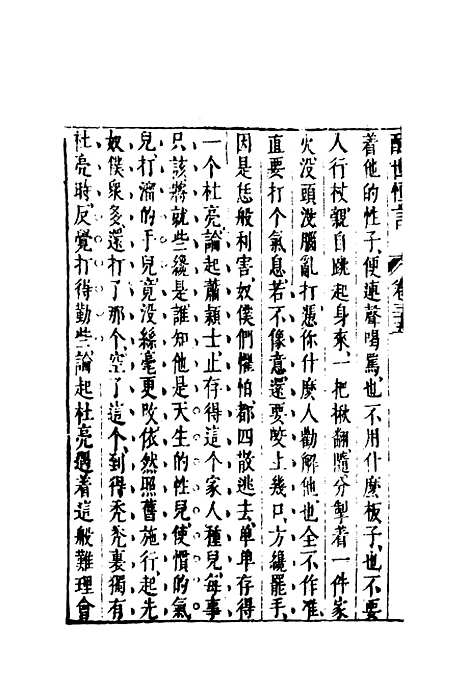 醒世恒言 卷三十五
着他的性子便連聲喝罵也不用什麼板子也不要
人行杖親自跳起身來一把揪翻隨分掣着一件家
火没頭没腦亂打憑你什麼人勸解他也全不作准
直要打个氣息若不像意還要咬上幾口方纔罷手
因是恁般利害奴僕們懼怕都四散逃去单单存得
一个杜亮論起蕭穎士止存得這个家人種兒每事
只該將就些纔是誰知他是天生的性兒使慣的氣
兒打溜的手兒竟没絲毫更改依然照舊施行起先
奴僕衆多還打了那个空了這个到得秃秃裏獨有
杜亮時反覺打得勤些論起杜亮遇着這般難理會